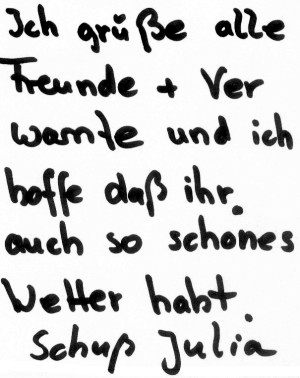 Ich grüße alle
Freunde + Ver
wamte und ich
hoffe daß ihr
auch so schones
Wetter habt.
Schuß Julia